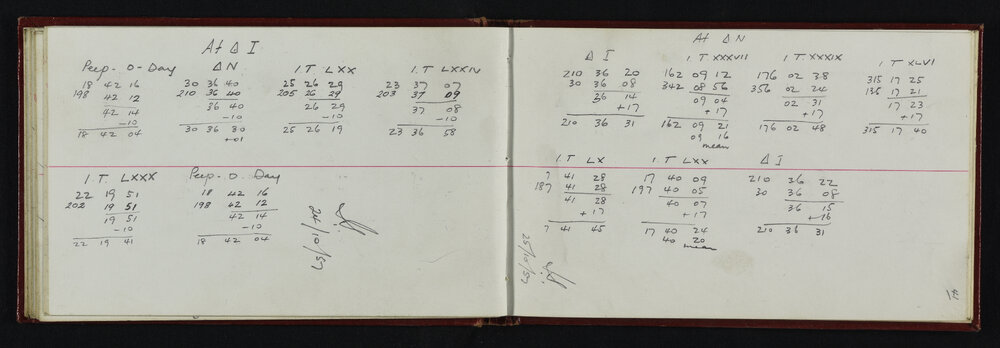 At Δ I
Peep-O-Day Δ N I.T LXX I.T LXXIV
18 42 16 30 36 40 25 26 29 23 37 07
198 42 12 210 36 40 205 26 29 203 37 09
42 14 36 40 26 29 37 08
-10 -10 -10 -10
18 42 04 30 36 30 25 26 19 23 36 58
+01
I.T LXXX Peep-O-Day
22 19 51 18 42 16
202 19 51 198 42 12
19 51 42 14
-10 -10
22 19 41 18 42 04
24/10/57
At Δ N
Δ I I.T XXXVII I.T XXXIX I.T XLVI
210 36 20 162 09 12 176 02 38 315 17 25
30 36 08 342 08 56 356 02 24 135 17 21
36 14 09 04 02 31 17 23
+17 +17 +17 +17
210 36 31 162 09 21 176 02 48 315 17 40
09 16
mean
I.T LX I.T LXX Δ I
7 41 28 17 40 09 210 36 22
187 41 28 197 40 05 30 36 08
41 28 40 07 36 15
+17 +17 +16
7 41 45 17 40 24 210 36 31
40 20
mean
25/10/57